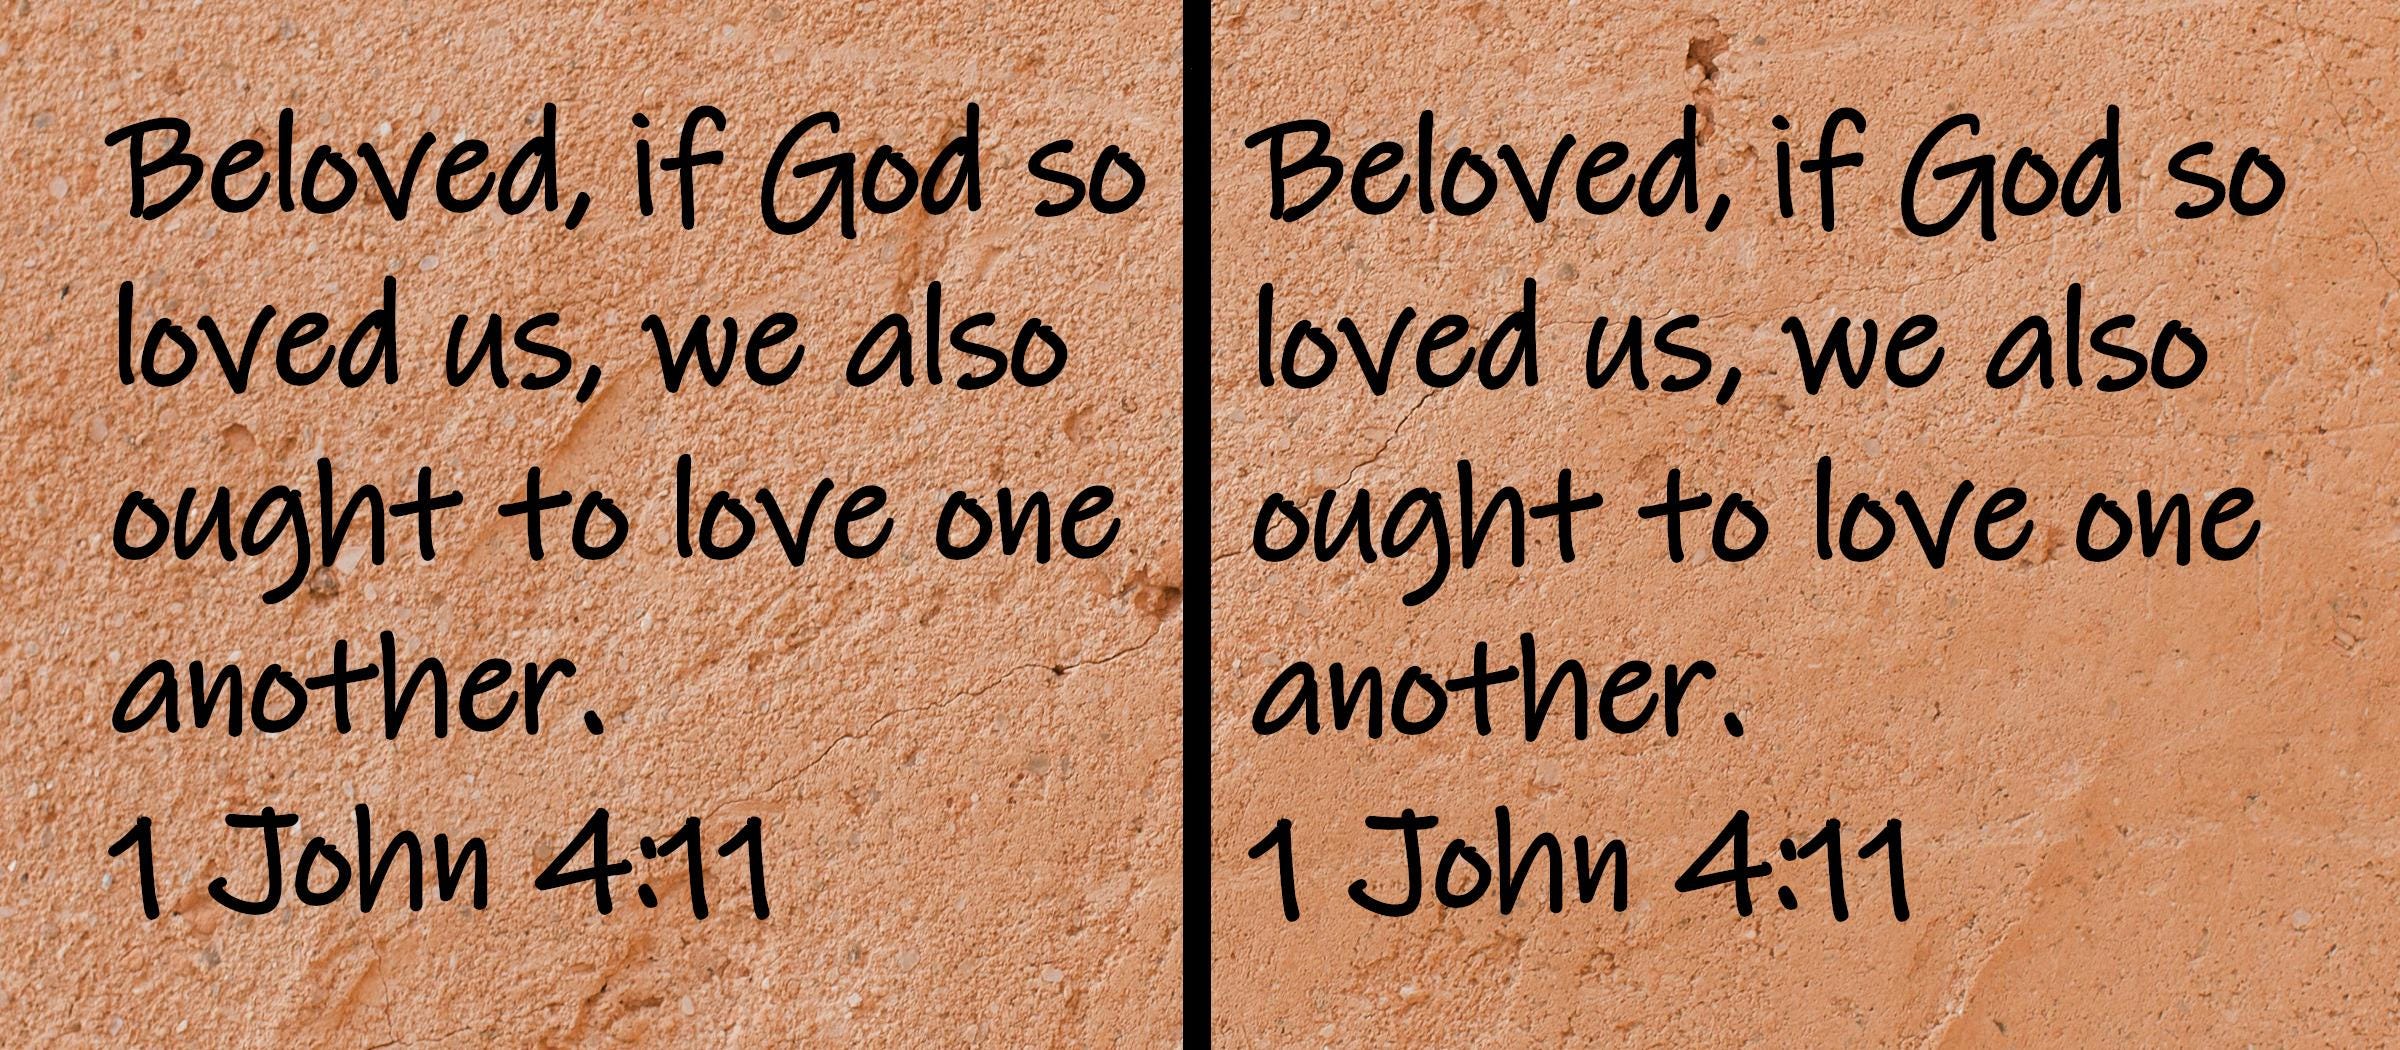 Beloved, if God so
loved us, we also
ought to love one
another.
1 John 4:11
Beloved, if God so
loved us, we also
ought to love one
another.
1 John 4:11